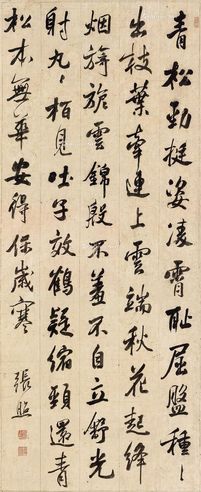 青松勁挺姿凌霄恥屈盤種〻
出枝葉牽連上雲端秋花起絳
烟旖旎雲錦殷不羞不自立舒光
射丸〻栢見吐子效鶴疑縮頸還青
松本無華安得保歲寒
張照